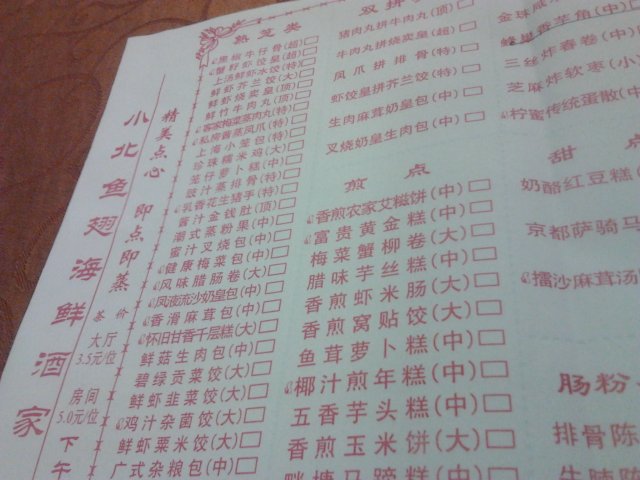 小北鱼翅海鲜酒家
精美点心
即点即蒸
茶价
大厅
3.5元/位
房间
5.0元/位
下午
熟笼类
黑椒牛仔骨(超)
蟹籽虾饺皇(超)
上汤鲜虾水饺(特)
鲜虾芥兰饺(大)
鲜虾烧卖皇(顶)
鲜竹牛肉丸(顶)
客家梅菜蒸肉丸(特)
私房酱蒸凤爪(特)
上海小笼包(特)
珍珠糯米鸡(大)
笼仔萝卜糕(中)
豉汁蒸排骨(特)
乳香花生猪手(特)
酱汁金钱肚(顶)
潮式蒸粉果(中)
蜜汁叉烧包(中)
健康梅菜包(中)
风味腊肠卷(大)
凤液流沙奶皇包(中)
香滑麻茸包(中)
怀旧甘香千层糕(大)
鲜菇生肉包(中)
碧绿贡菜饺(大)
鲜虾韭菜饺(大)
鸡汁杂菌饺(大)
鲜虾粟米饺(大)
广式杂粮包(中)
双拼
猪肉丸拼牛肉丸(顶)
牛肉丸拼烧卖皇(超)
凤爪拼排骨(特)
虾饺皇拼芥兰饺(特)
生肉麻茸奶皇包(中)
叉烧奶皇生肉包(中)
煎点
香煎农家艾糍饼(中)
富贵黄金糕(中)
梅菜蟹柳卷(大)
腊味芋丝糕(中)
香煎虾米肠(大)
香煎窝贴饺(大)
鱼茸萝卜糕(中)
椰汁煎年糕(中)
五香芋头糕(中)
香煎玉米饼(大)
马蹄糕(中)
金珠咸
蜂巢香芋角(中)
三丝炸春卷(中)
芝麻炸软枣(小)
柠蜜传统蛋散(中)
甜点
奶酪红豆糕(
京都萨骑马
擂沙麻茸汤
肠粉
排骨陈
牛腩陈